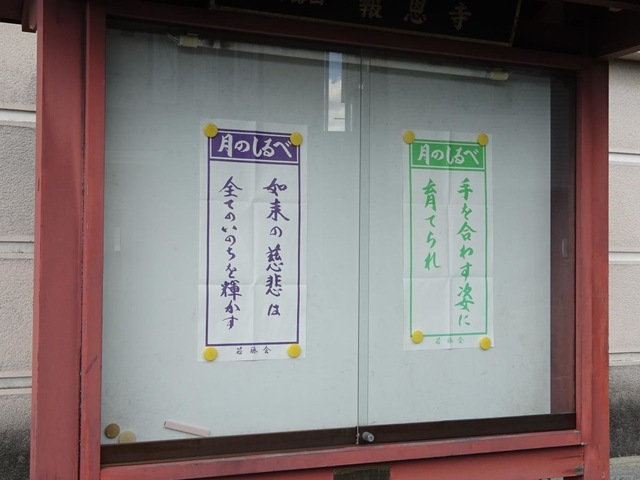 報恩寺
月のしるべ
如来の慈悲は
全てのいのちを輝かす
月のしるべ
手を合わす姿に
育てられ